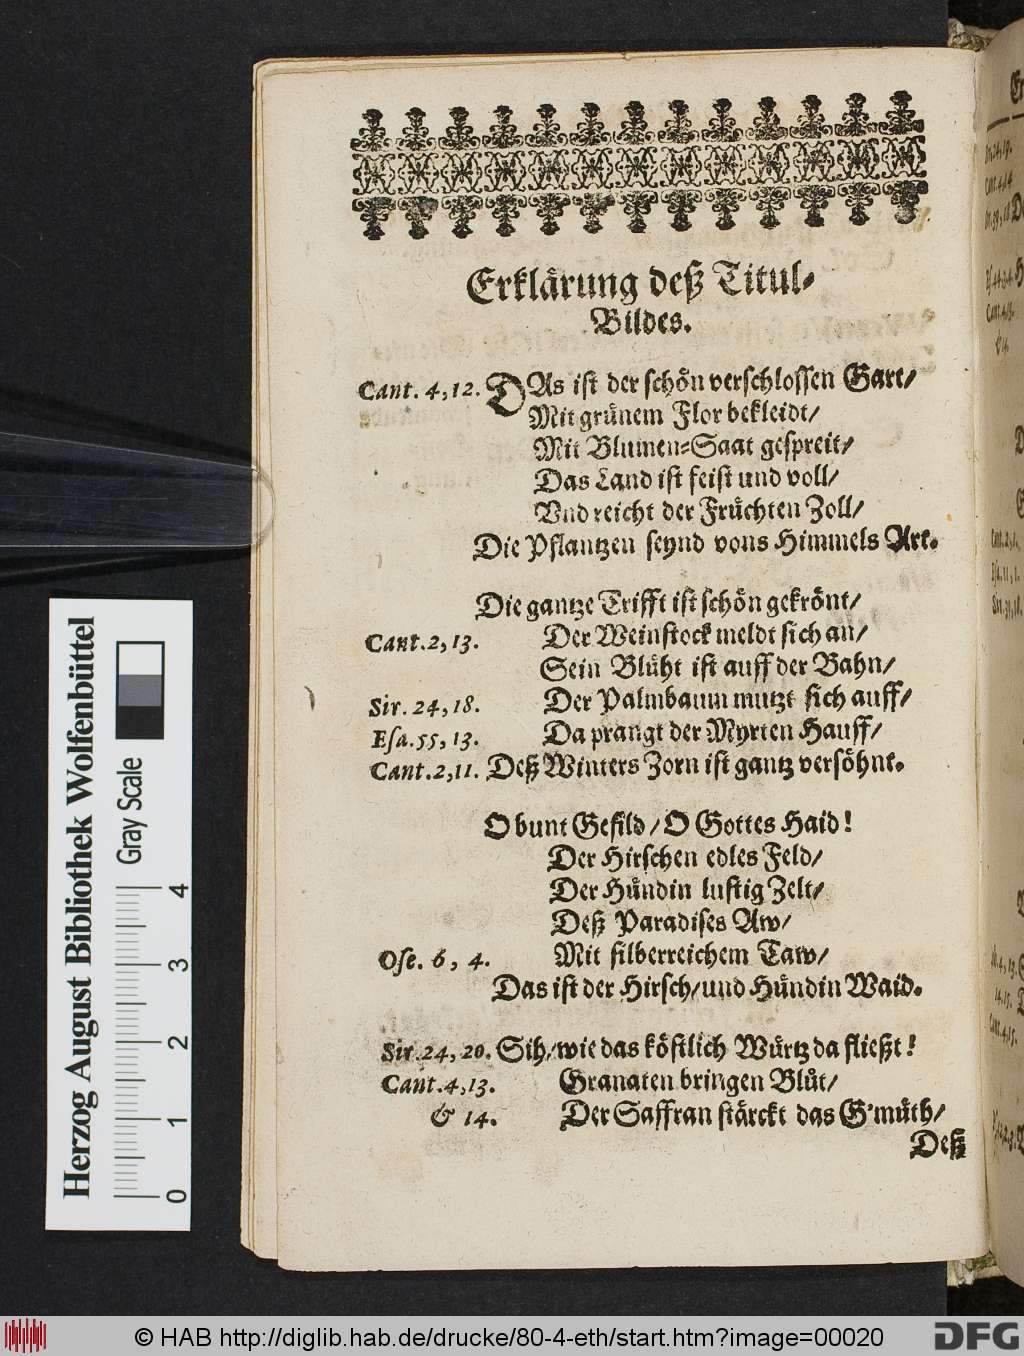 Erklärung deß Titul-
Bildes.
Cant. 4, 12. DAs ist der schön verschlossen Gart/
Mit grünem Flor bekleidt/
Mit Blumen-Saat gespreit/
Das Land ist feist und voll/
Vnd reicht der Früchten Zoll/
Die Pflantzen seynd vons Himmels Art.
Die gantze Trifft ist schön gekrönt/
Cant. 2, 13. Der Weinstock meldt sich an/
Sein Blüht ist auff der Bahn/
Sir. 24, 18. Der Palmbaum mutzt sich auff/
Esa. 55, 13. Da prangt der Myrten Hauff/
Cant. 2, 11. Deß Winters Zorn ist gantz versöhnt.
O bunt Gefild/ O Gottes Haid!
Der Hirschen edles Feld/
Der Hündin lustig Zelt/
Deß Paradises Aw/
Ose. 6, 4. Mit silberreichem Taw/
Das ist der Hirsch/ und Hündin Waid.
Sir. 24, 20. Sih/ wie das köstlich Würtz da fließt!
Cant. 4, 13. Granaten bringen Blüt/
& 14. Der Saffran stärckt das G'müth/
Deß
Herzog August Bibliothek Wolfenbüttel
Gray Scale
0 1 2 3 4
© HAB http://diglib.hab.de/drucke/80-4-eth/start.htm?image=00020
DFG